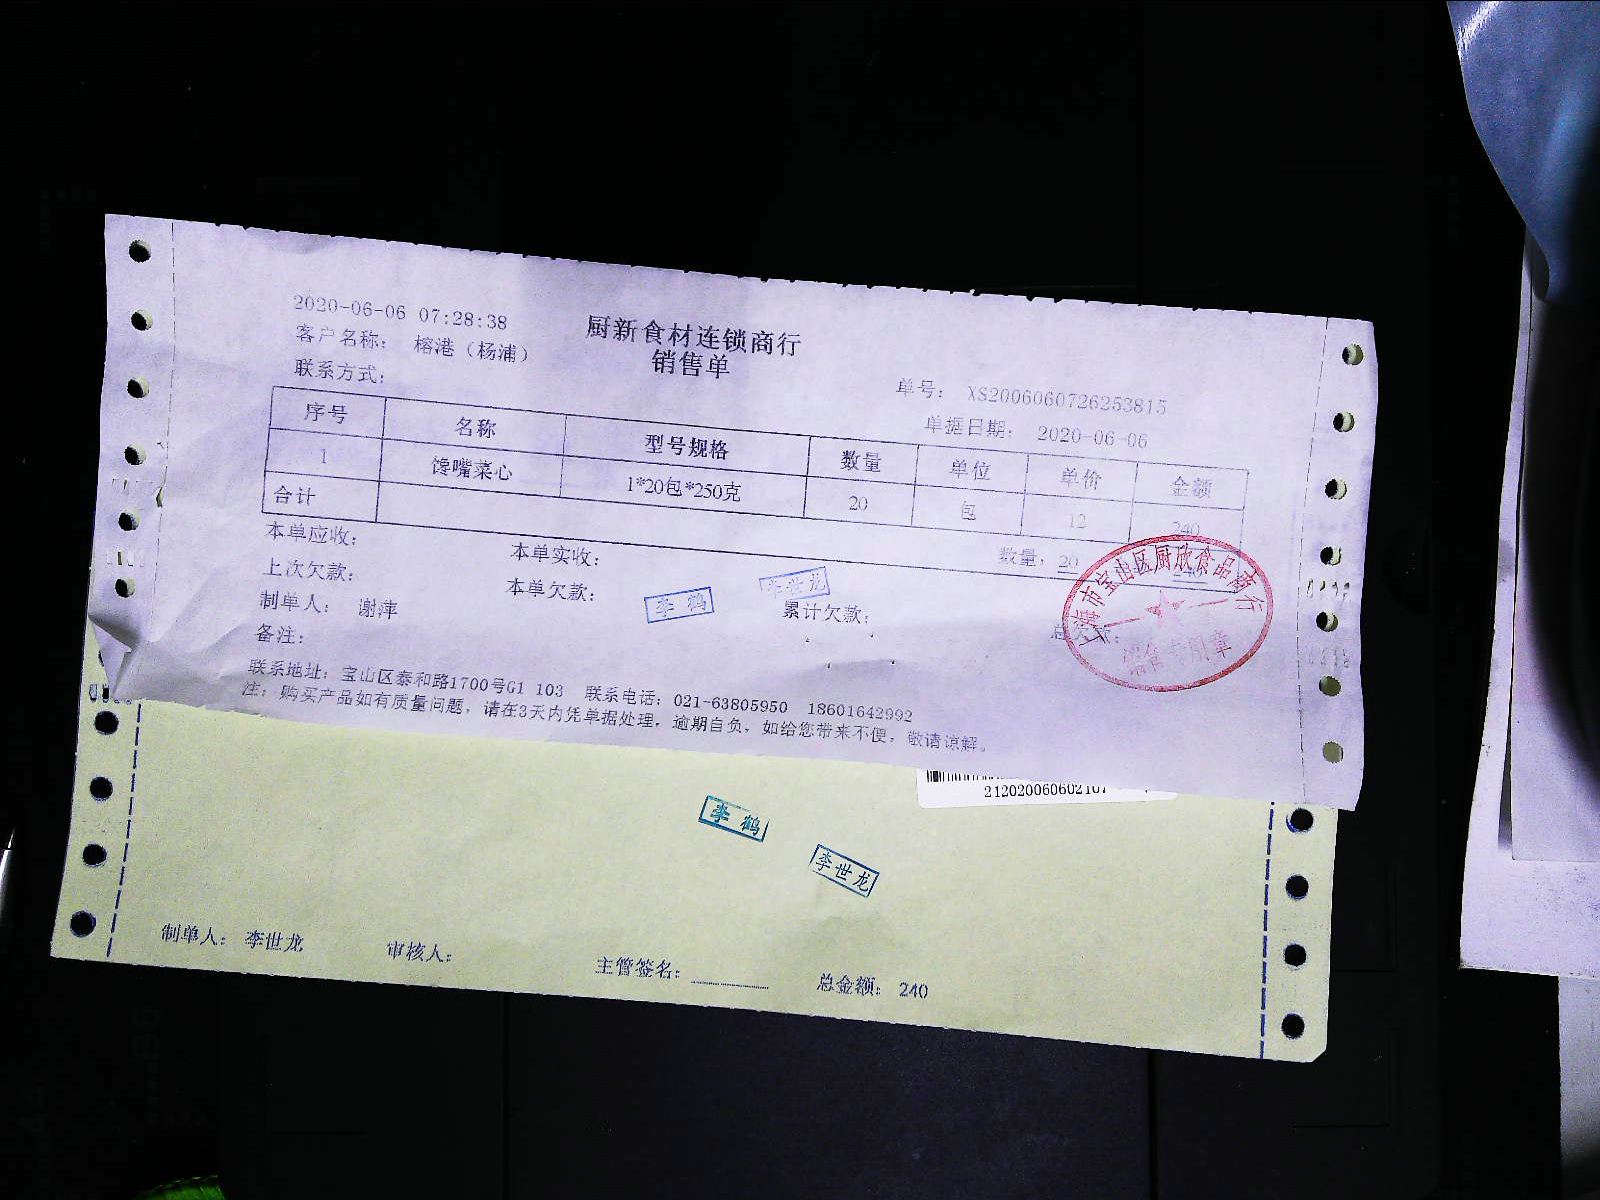 2020-06-06 07:28:38
厨新食材连锁商行
销售单
客户名称： 榕港（杨浦）
联系方式：
单号： XS2006060726253815
单据日期： 2020-06-06
序号 名称 型号规格 数量 单位 单价 金额
1 馋嘴菜心 1*20包*250克 20 包 12 240
合计 数量：20
本单应收： 本单实收：
上次欠款： 本单欠款： 累计欠款：
制单人： 谢萍
备注：
李鹤
李世龙
上海市宝山区厨欣食品商行
销售专用章
联系地址：宝山区泰和路1700号G1 103 联系电话：021-63805950 18601642992
注：购买产品如有质量问题，请在3天内凭单据处理，逾期自负，如给您带来不便，敬请谅解。
李鹤
李世龙
制单人： 李世龙 审核人： 主管签名： 总金额： 240